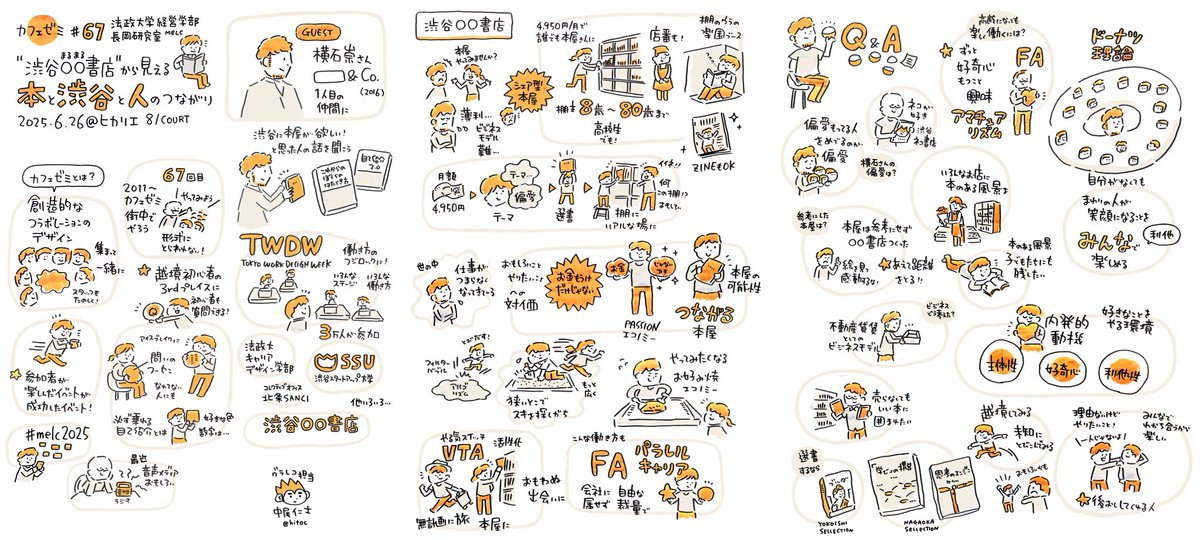 カフェゼミ #67
法政大学 経営学部
長岡研究室 MELC
まるまる
"渋谷〇〇書店"から見える
本と渋谷と人のつながり
2025.6.26@ヒカリエ 8/COURT
カフェゼミとは?
創造的な
コラボレーションの
デザイン
集まって
一緒に
スタッフも
たのしく!
67回目
2011〜
カフェゼミ
街中で
やろう
やってみよう
形式に
とらわれない!
越境初心者の
3rdプレイスに
初心者も
質問できる!
Q
参加者が
楽しんだイベントが
成功したイベント!
アイスブレイクに
問いの
フーセン
なれてない
人にも
必ず乗れる
自己紹介とは
好きな色
数字は…
#melc2025
最近
音声メディア
おもしろい
ラジオ
GUEST
横石崇さん
&Co.
(2016)
1人目の
仲間に
渋谷に本屋が欲しい!
と思った人の話を聞こう
これからの
ぼくらの
はたらき方
自己紹介
2.0
TWDW
TOKYO WORK DESIGN WEEK
働き方の
フジロックに!
いろんな
ステージ
いろんな
働き方
3万人が参加
法政大
キャリア
デザイン学部
SSU
渋谷スタートアップ大学
コレクティブオフィス
北条SANCI
他いろいろ…
渋谷〇〇書店
グラレコ担当
中尾仁士
@hitoc
渋谷〇〇書店
本屋
やってみませんか?
薄利…
ビジネス
モデル
難…
シェア型
本屋
4,950円/月で
誰でも本屋さんに
店番も!
棚のウラの
楽園スペース
棚主8歳〜80歳まで
高校生
でも!
ZINEもOK
月額
4,950円
テーマ
テーマ
偏愛
選書
棚に
リアルな場に
イイネ!!
何
この棚!?
世の中
仕事が
つまらなく
なってきてる
おもしろいこと
やりたいこと
への
対価
お金もうけ
だけじゃない
お金
じゃない
PASSION
エコノミー
本屋の
可能性
つながる
本屋
とびだす!
フィルター
バブル
アルゴ
リズム
狭いとこで
スキを探しがち
もっと
広く
やってみたくなる
お好み焼
エコノミー
やる気スイッチ
VTA
活性化
無計画に旅
本屋に
おもわぬ
出会いに
こんな働き方も
FA
パラレル
キャリア
会社に
属せず
自由な
裁量で
Q&A
偏愛もってる人
をめでるのが
偏愛
横石さんの
偏愛は?
ネコが
好き
渋谷
ネコ書店
高齢になっても
楽しく働くには?
ずっと
好奇心
もつこと
興味
FA
アマチュア
リズム
ドーナツ
理論
自分がなくても
まわりの人が
笑顔になることよ
みんなで
楽しめる
利他
いろんなお店に
本のある風景を
参考にした
本屋は?
本屋は参考にせず
〇〇書店つくった
絵を見て
感動するな!
あえて距離
をとる!!
本のある風景
子どもたちにも
残したい
ビジネス
どう考えた?
不動産賃貸
としての
ビジネスモデル
内発的
動機
好きなことを
やる環境
主体性
好奇心
利他性
売らなくても
いい本に
囲まれたい
越境してみる
未知に
とびこんでみる
おもしろいかも
理由ないけど
やりたいこと!
みんなで
わかち合うから
楽しい
いーんじゃないよ!
後おししてくれる人
選書
するなら
YOKOISHI
SELLECTION
NAGAOKA
SELLECTION